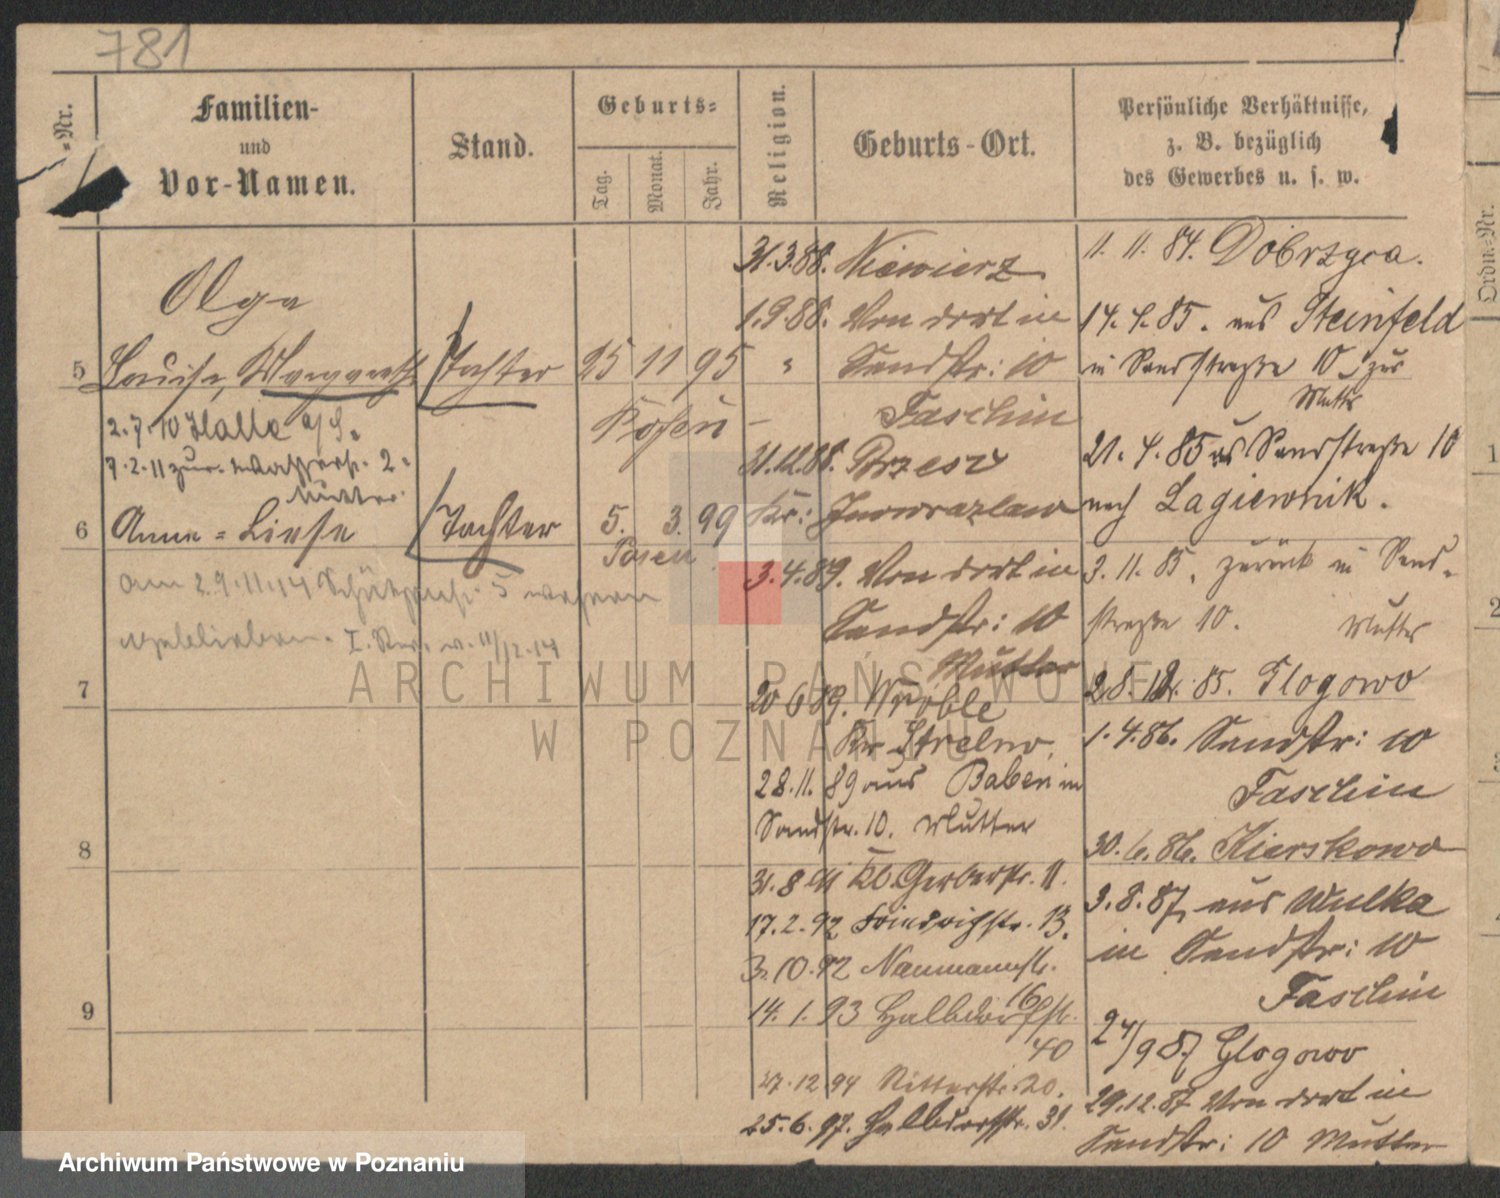 781
-Nr.
Familien-
und
Vor-Namen.
Stand.
Geburts-
Tag.
Monat.
Jahr.
Religion.
Geburts-Ort.
Persönliche Verhältnisse,
z. B. bezüglich
des Gewerbes u. s. w.
Ordn.-Nr.
Olga
5 Louise, Margareth Tochter 25 11 95 "
Posen
2.7.10 Halle a/S.
7.2.11 zur 2
Mutter
6 Anna-Liese Tochter 5. 3. 99
Posen
am 29.11.14 5
I. Rev. v. 11/12.14
7
8
9
31.3.88. Niewierz
1.9.88. Von dort in
Sandstr: 10
Faschin
31.12.88. Brzesz
Kr: Inowrazlaw
3.4.89. Von dort in
Sandstr: 10
Mutter
20 6 89. Wroble
Kr Strelno.
28.11.89 aus Baben in
Sandstr. 10. Mutter
31.8.91 Kl. Gerberstr. 11.
17.2.92 Friedrichstr. 13.
3.10.92 Naumannstr.
16
14.1.93 Halbdorfstr.
40
27.12.94 Ritterstr. 20.
25.6.97. Halbdorfstr. 31.
11. 11. 84. Dobrzyca.
14. 4. 85. aus Steinfeld
in Sandstraße 10, zur
Mutter
21. 4. 85 aus Sandstraße 10
nach Lagiewnik.
3. 11. 85, zurück in Sand-
straße 10. Mutter
28. 12. 85. Glogowo
1. 4. 86. Sandstr: 10
Faschin
30. 6. 86. Kierskowo
3. 8. 87, aus Wulka
in Sandstr: 10
Faschin
24/9 87 Glogowo
29.12.87 Von dort in
Sandstr: 10 Mutter
1
2
ARCHIWUM PAŃSTWOWE
W POZNANIU
Archiwum Państwowe w Poznaniu